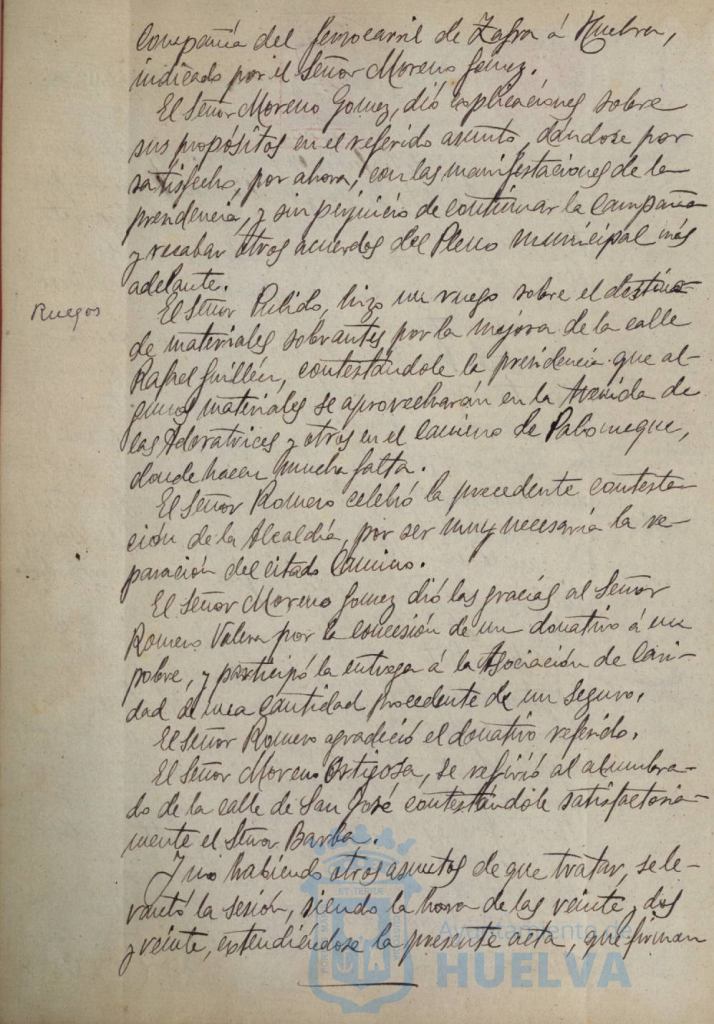 Compañía del ferrocarril de Zafra á Huelva,
indicado por el Señor Moreno Gómez.
El Señor Moreno Gomez, dió explicaciones sobre
sus propósitos en el referido asunto, dándose por
satisfecho, por ahora, con las manifestaciones de la
presidencia, y sin perjuicio de continuar la Campaña
y recabar otros acuerdos del Pleno municipal más
adelante.
Ruegos
El Señor Pulido, hizo un ruego sobre el destino
de materiales sobrantes por la mejora de la calle
Rafael Guillén, contestándole la presidencia que al-
gunos materiales se aprovecharán en la Avenida de
las Adoratrices y otros en el Camino de Palomeque,
donde hacen mucha falta.
El Señor Romero celebró la precedente contesta-
ción de la Alcaldía, por ser muy necesaria la re-
paración del citado Camino.
El Señor Moreno Gomez dió las gracias al Señor
Romero Valera por la concesión de un donativo á un
pobre, y participó la entrega á la Asociación de Cari-
dad de una Cantidad procedente de un Seguro.
El Señor Romero agradeció el donativo referido.
El Señor Moreno Ortigosa, se refirió al alumbra-
do de la calle de San José contestándole satisfactoria-
mente el Señor Barba.
Y no habiendo otros asuntos de que tratar, se le-
vantó la sesión, siendo la hora de las veinte y dos
y veinte, extendiéndose la presente acta, que firman
Ayuntamiento de
HUELVA